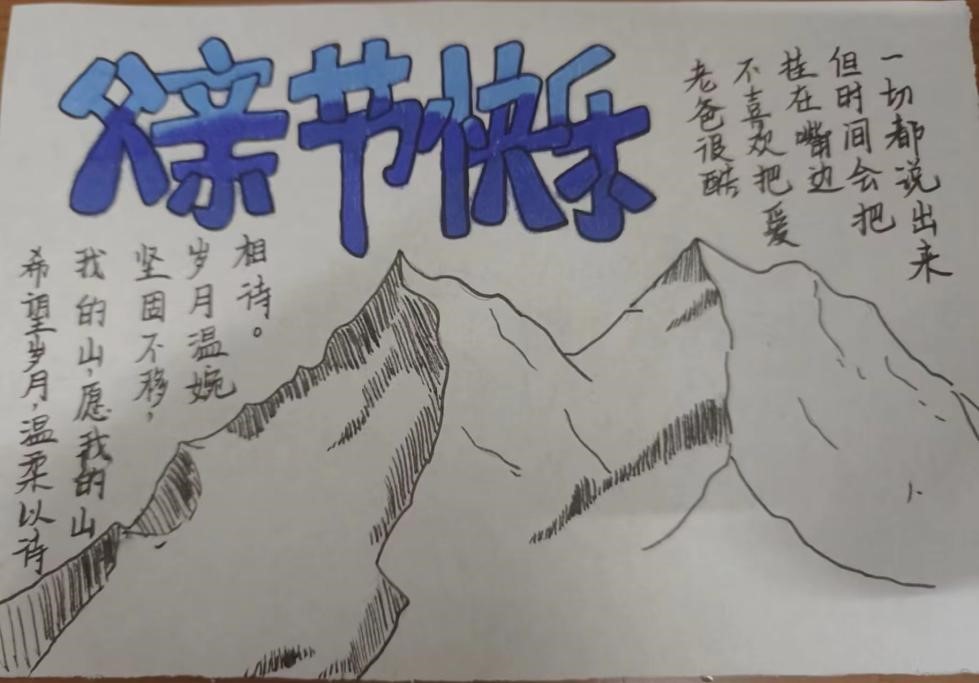 父亲节快乐
老爸很酷
不喜欢把爱
挂在嘴边
但时间会把
一切都说出来
希望岁月,温柔以诗
我的山,愿我的山
坚固不移,
岁月温婉
相诗。